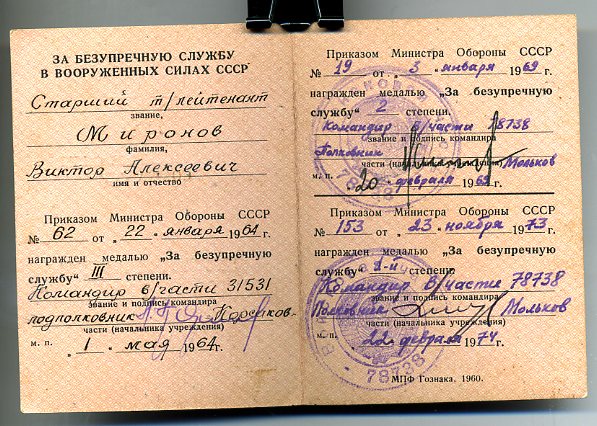 ЗА БЕЗУПРЕЧНУЮ СЛУЖБУ
В ВООРУЖЕННЫХ СИЛАХ СССР
Старший т/лейтенант
звание,
Миронов
фамилия,
Виктор Алексеевич
имя и отчество
Приказом Министра Обороны СССР
№ 62 от „ 22 “ января 1964 г.
награжден медалью „За безупречную
службу“ III степени.
Командир в/части 31531
звание и подпись командира
подполковник
части (начальника учреждения)
м. п. „ 1 “ мая 1964 г.
Приказом Министра Обороны СССР
№ 19 от „ 3 “ января 1969 г.
награжден медалью „За безупречную
службу“ 2 степени.
Командир В/части 78738
звание и подпись командира
Полковник Мольков
части (начальника учреждения)
м. п. „ 20 “ февраля 1969 г.
Приказом Министра Обороны СССР
№ 153 от „ 23 “ ноября 1973 г.
награжден медалью „За безупречную
службу“ 1-й степени
Командир В/части 78738
звание и подпись командира
Полковник Мольков
части (начальника учреждения)
м. п. „ 22 “ февраля 1974 г.
78738
МПФ Гознака. 1960.